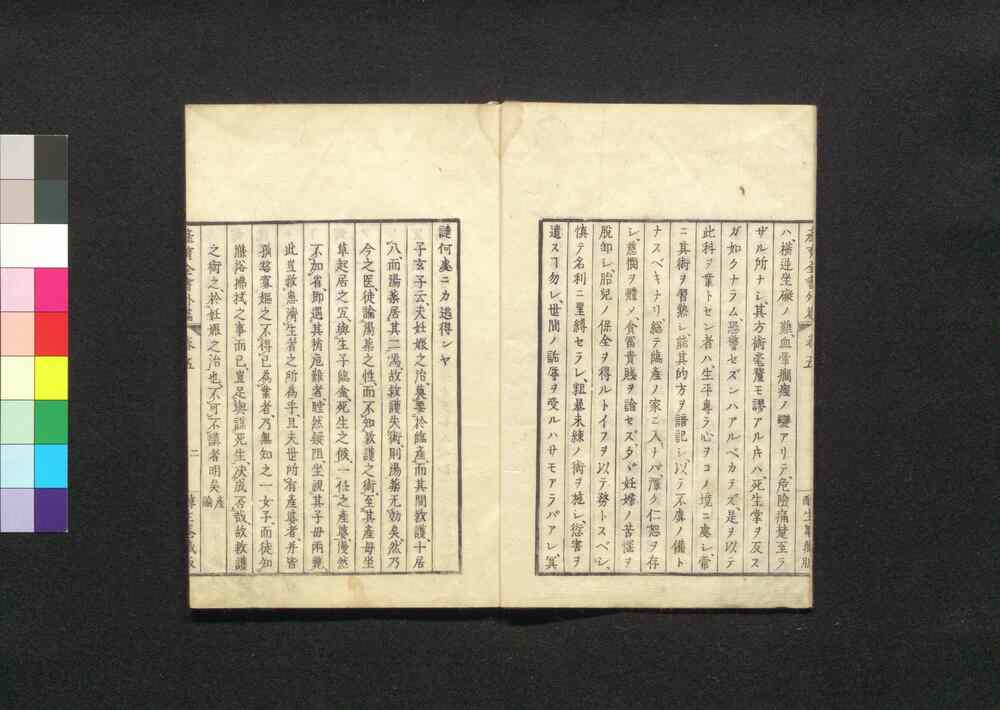 ハ、横逆坐礙ノ難、血暈癇瘈ノ變アリテ、危險痛楚至ラ
ザル所ナシ、其方術毫釐モ謬アルキハ、死生掌ヲ反ス
ガ如クナラム、恐警セズンハアルベカラズ、是ヲ以テ
此科ヲ業トセン者ハ、生平專ラ心ヲコノ境ニ處シ、常
ニ其術ヲ習熟シ、能其的方ヲ諳記シ、以テ不虞ノ備ト
ナスベキナリ、総テ臨産ノ家ニ入ナバ、深ク仁恕ヲ存
シ、慈憫ヲ體ノ、貪富貴賤ヲ論セズ、タヾ妊婦ノ苦惱ヲ
脱卸シ、胎兒ノ保全ヲ得ルトイフヲ以テ務トスベシ、
慎テ名利ニ羈縛セラレ、粗暴未練ノ術ヲ施シ、愆害ヲ
遺スヿ勿レ、世間ノ詬辱ヲ受ルハサモアラバアレ、冥
譴何處ニカ逃得ンヤ
子玄子云、夫妊娠之治、莫要於臨産、而其間救護十居
八、而湯藥居其二焉、故救護失術、則湯藥无効矣、然乃
今之医徒、論湯藥之性、而不知救護之術、至其産母坐
草起居之宜、與生子臨盆死生之候、一任之産婆、漫然
不加省、即遇其稍危難者、瞠然綏阻、坐視其子母兩斃
此豈救患濟生者之所為乎、且夫世所有産婆者、并皆
孤嫠寡嫗之不得已為業者、乃無知之一女子、而徒知
澡浴拂拭之事而已、豈足與謀死生、决成否哉、故救護
之術之於妊娠之治也、不可不講者明矣 産論
産育全書外篇 卷五 二